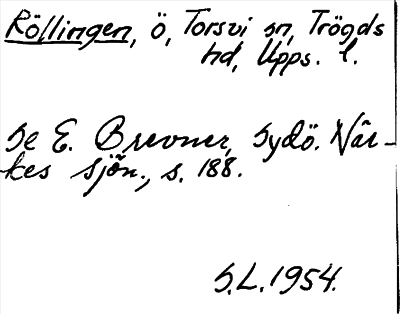 Röllingen, ö, Torsvi sn, Trögds
hd, Upps. l.
Se E. Brevner, Sydö. När-
kes sjön., s. 188.
S.L. 1954.